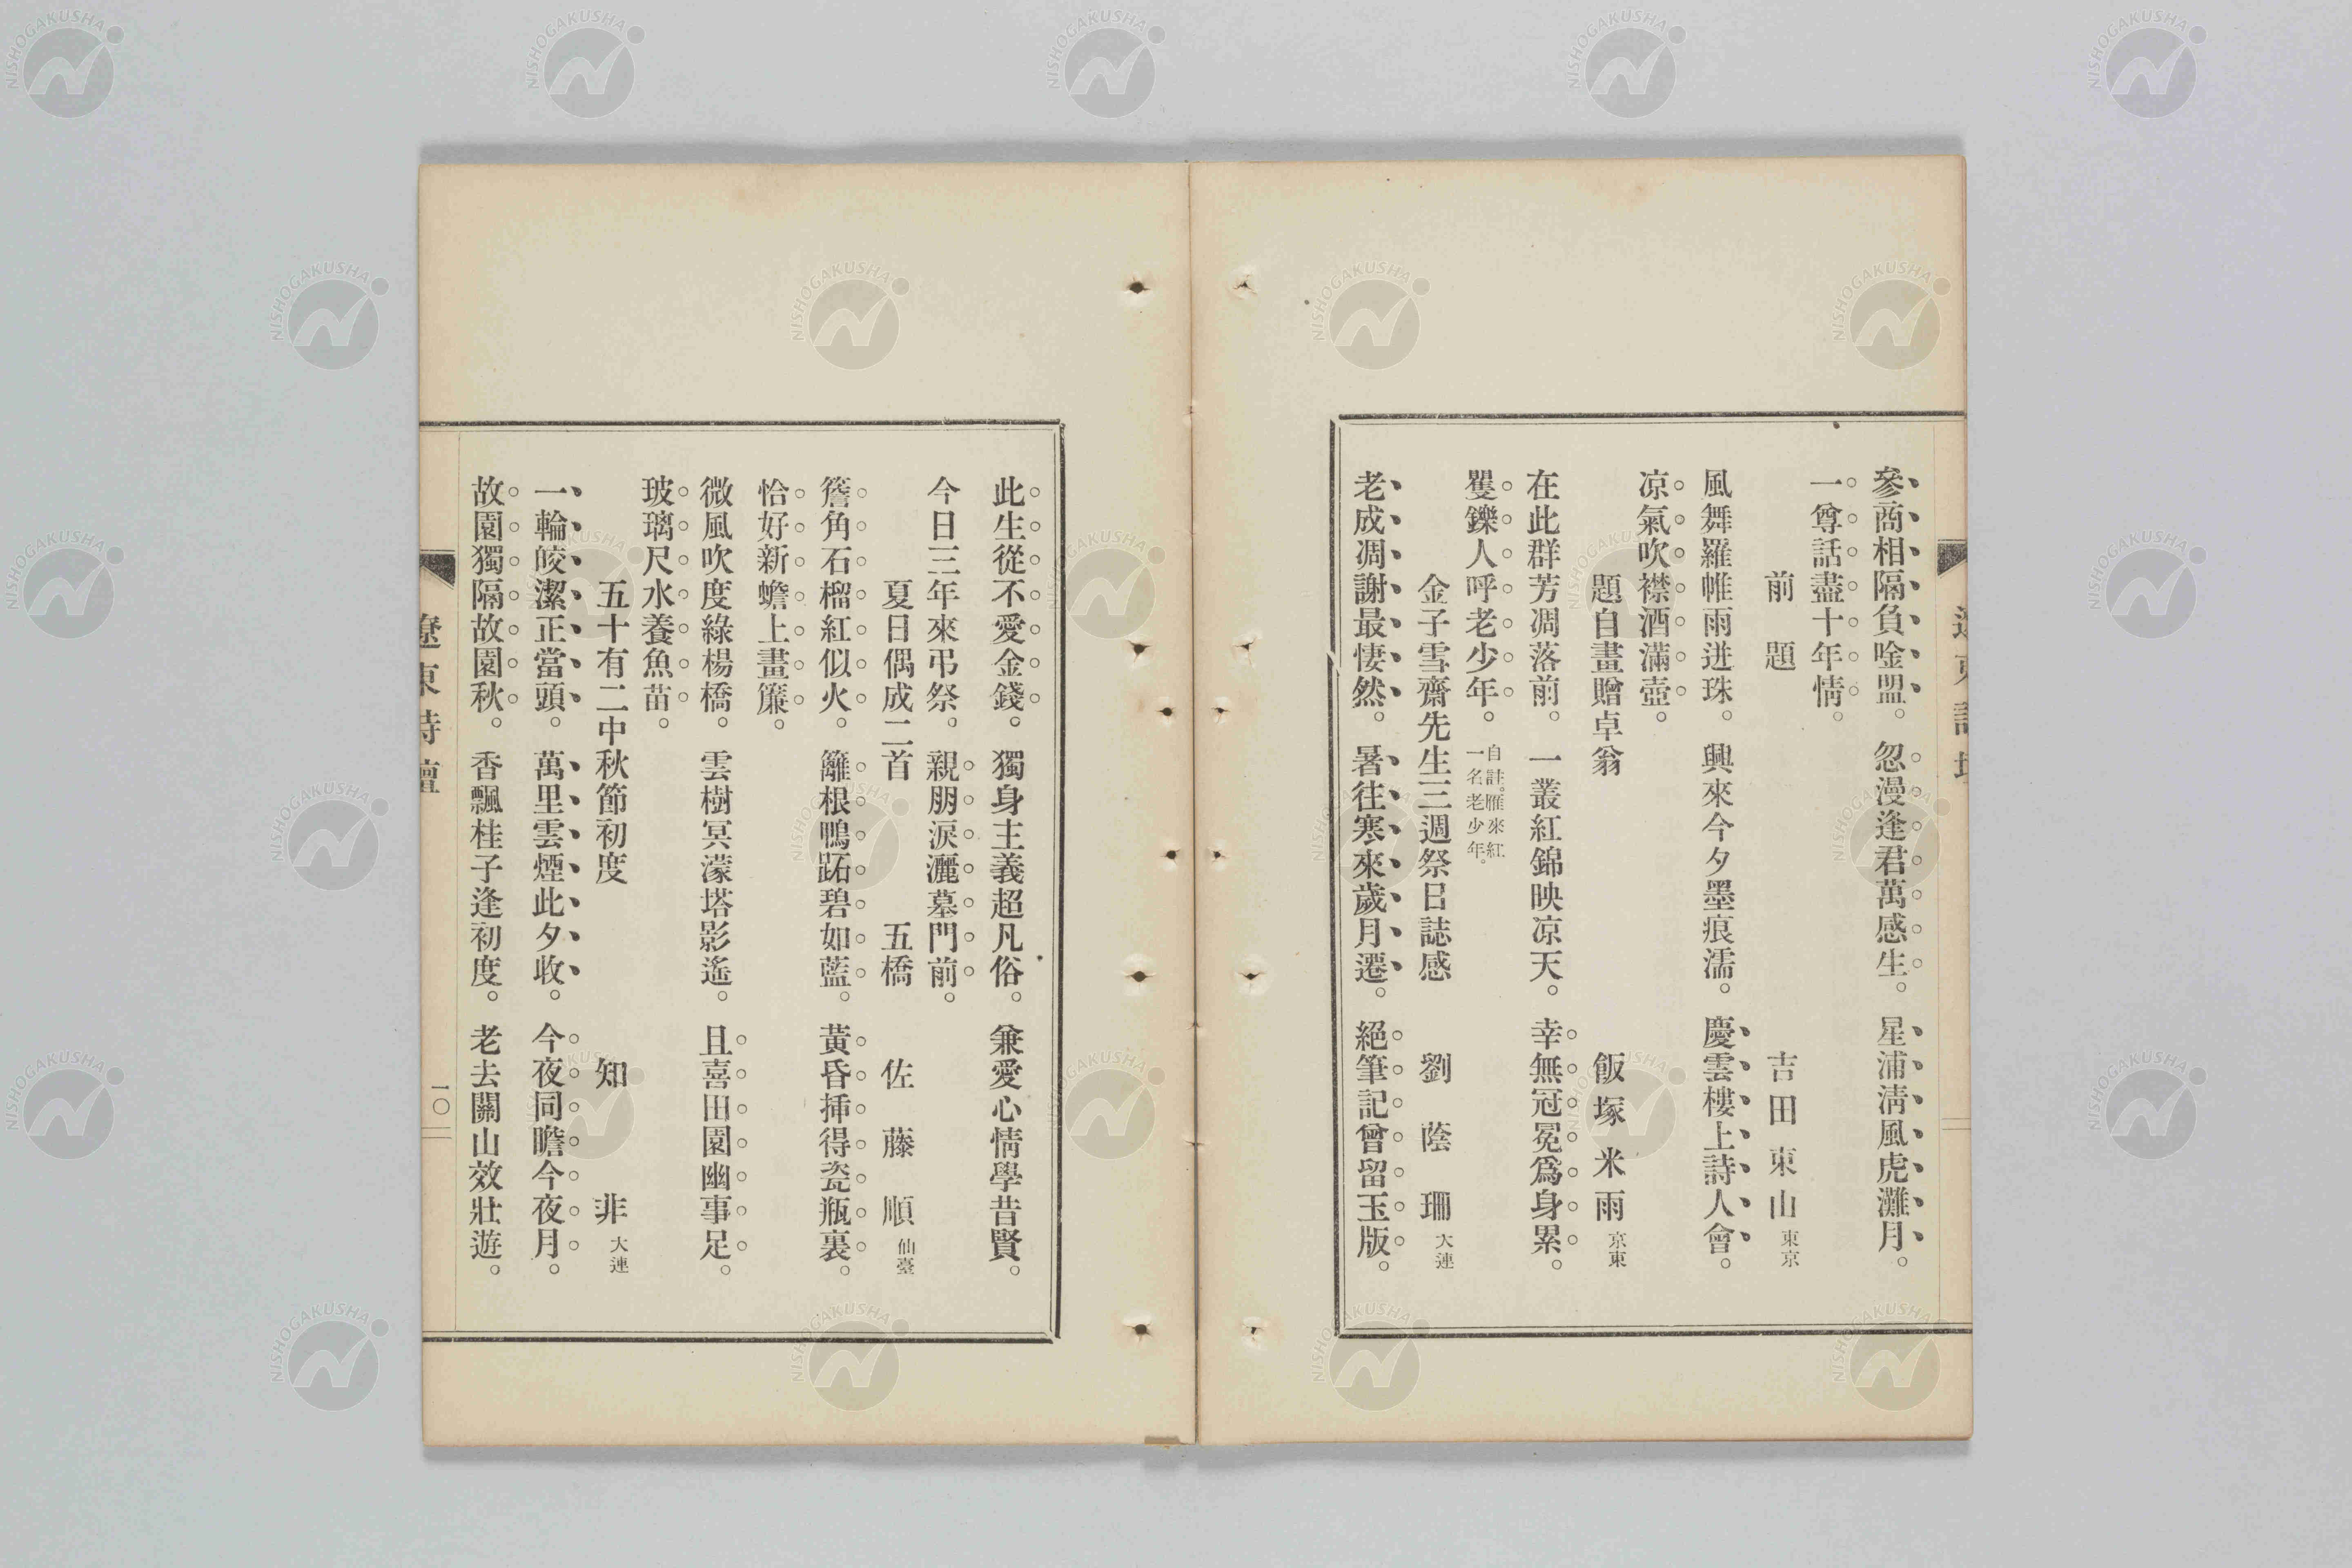 參商相隔負唫盟。忽漫逢君萬感生。星浦淸風虎灘月。
一尊話盡十年情。
前題 吉田東山 東京
風舞羅帷雨迸珠。興來今夕墨痕濡。慶雲樓上詩人會。
凉氣吹襟酒滿壺。
題自畫贈卓翁 飯塚米雨 京東
在此群芳凋落前。一叢紅錦映凉天。幸無冠冕爲身累。
矍鑠人呼老少年。自註。雁來紅一名老少年。
金子雪齋先生三週祭日誌感 劉蔭珊 大連
老成凋謝最悽然。暑往寒來歲月遷。絕筆記曾留玉版。
此生從不愛金錢。獨身主義超凡俗。兼愛心情學昔賢。
今日三年來弔祭。親朋淚灑墓門前。
夏日偶成二首 五橋 佐藤順 仙臺
簷角石榴紅似火。籬根鴨跖碧如藍。黃昏挿得瓷瓶裏。
恰好新蟾上畫簾。
微風吹度綠楊橋。雲樹冥濛塔影遙。且喜田園幽事足。
玻璃尺水養魚苗。
五十有二中秋節初度 知非 大連
一輪皎潔正當頭。萬里雲煙此夕收。今夜同瞻今夜月。
故園獨隔故園秋。香飄桂子逢初度。老去關山效壯遊。
遼東詩壇 一〇
NISHOGAKUSHA